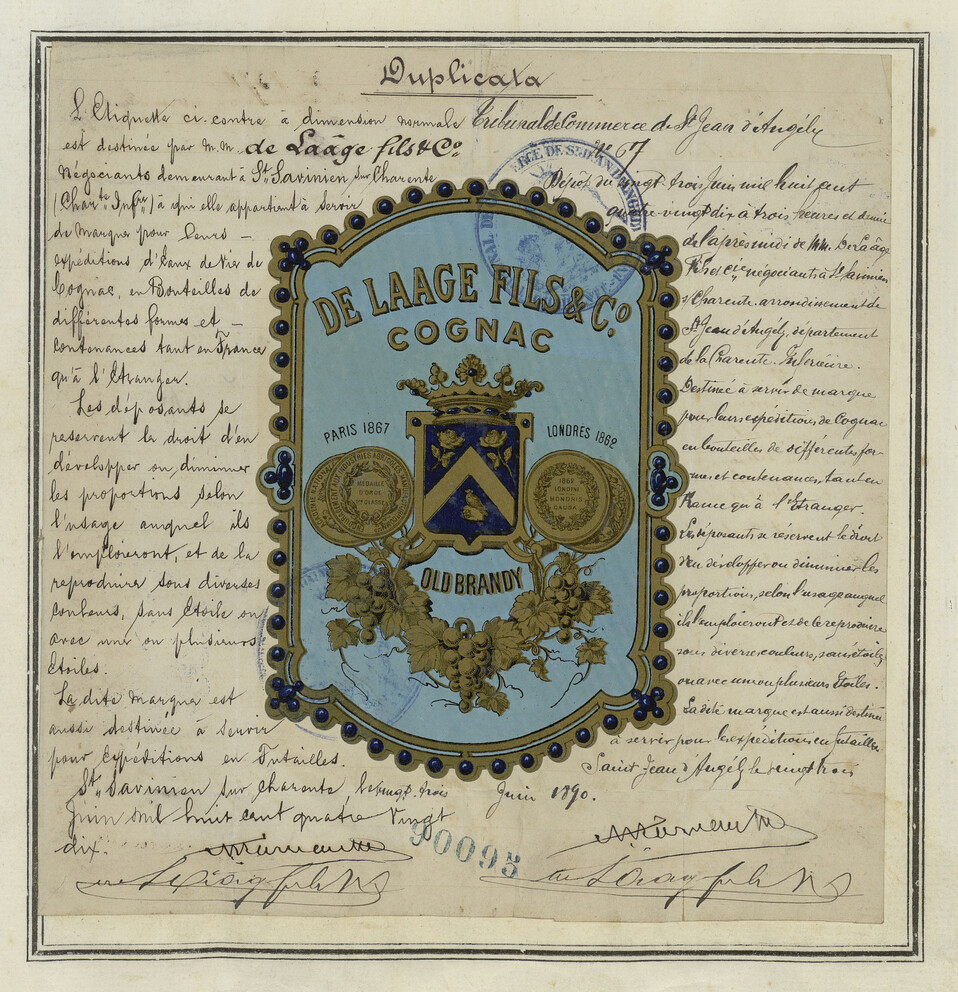 Duplicata
L'Etiquette ci-contre à dimension normale
est destinée par M.M. de Laâge fils & Co
Négociants demeurant à St Savinien sur Charente
(Charte Infre) à qui elle appartient à servir
de Marque pour leurs -
expéditions d'Eaux de Vie de
Cognac, en Bouteilles de
différentes formes et -
contenances tant en France
qu'à l'Etranger.
Les déposants se
reservent le droit d'en
développer ou diminuer
les proportions selon
l'usage auquel ils
l'emploieront, et de la
reproduire sous diverses
couleurs, sans étoile ou
avec une ou plusieurs
étoiles.
La dite marque est
aussi destinée à servir
pour expéditions en Futailles.
St Savinien sur Charente le vingt trois
Juin Mil huit cent quatre Vingt
dix.
DE LAAGE FILS & Co
COGNAC
PARIS 1867
LONDRES 1862
MÉDAILLE
D'OR DE
1862
LONDINI
HONORIS
CAUSA
OLD BRANDY
Tribunal de Commerce de St Jean d'Angély
N° 67
Dépôt du vingt trois Juin mil huit cent
quatre vingt dix à trois heures et demie
de l'après midi de MM. De Laâge
Fils et Cie négociants à St Savinien
s/ Charente, arrondissement de
St Jean d'Angély, département
de la Charente-Inférieure.
Destinée à servir de marque
pour leurs expéditions de Cognac
en bouteilles de différentes for-
mes et contenances, tant en
France qu'à l'Etranger.
Les déposants se réservent le droit
d'en développer ou diminuer les
proportions, selon l'usage auquel
ils l'emploieront et de le reproduire
sous diverses couleurs, sans étoile,
ou avec une ou plusieurs étoiles.
La dite marque est aussi destinée
à servir pour les expéditions en futailles
Saint Jean d'Angély le vingt trois
Juin 1890.
90095